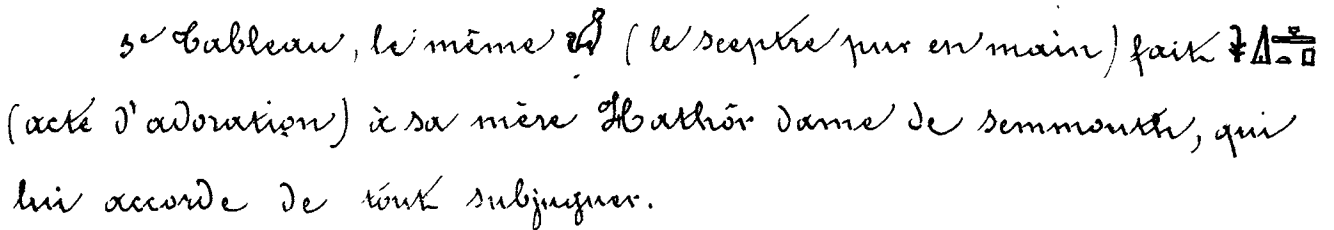 3e Tableau, le même (le sceptre pur en main) fait
(acte d'adoration) à sa mère Hathôr dame de semmouth, qui
lui accorde de tout subjuguer.